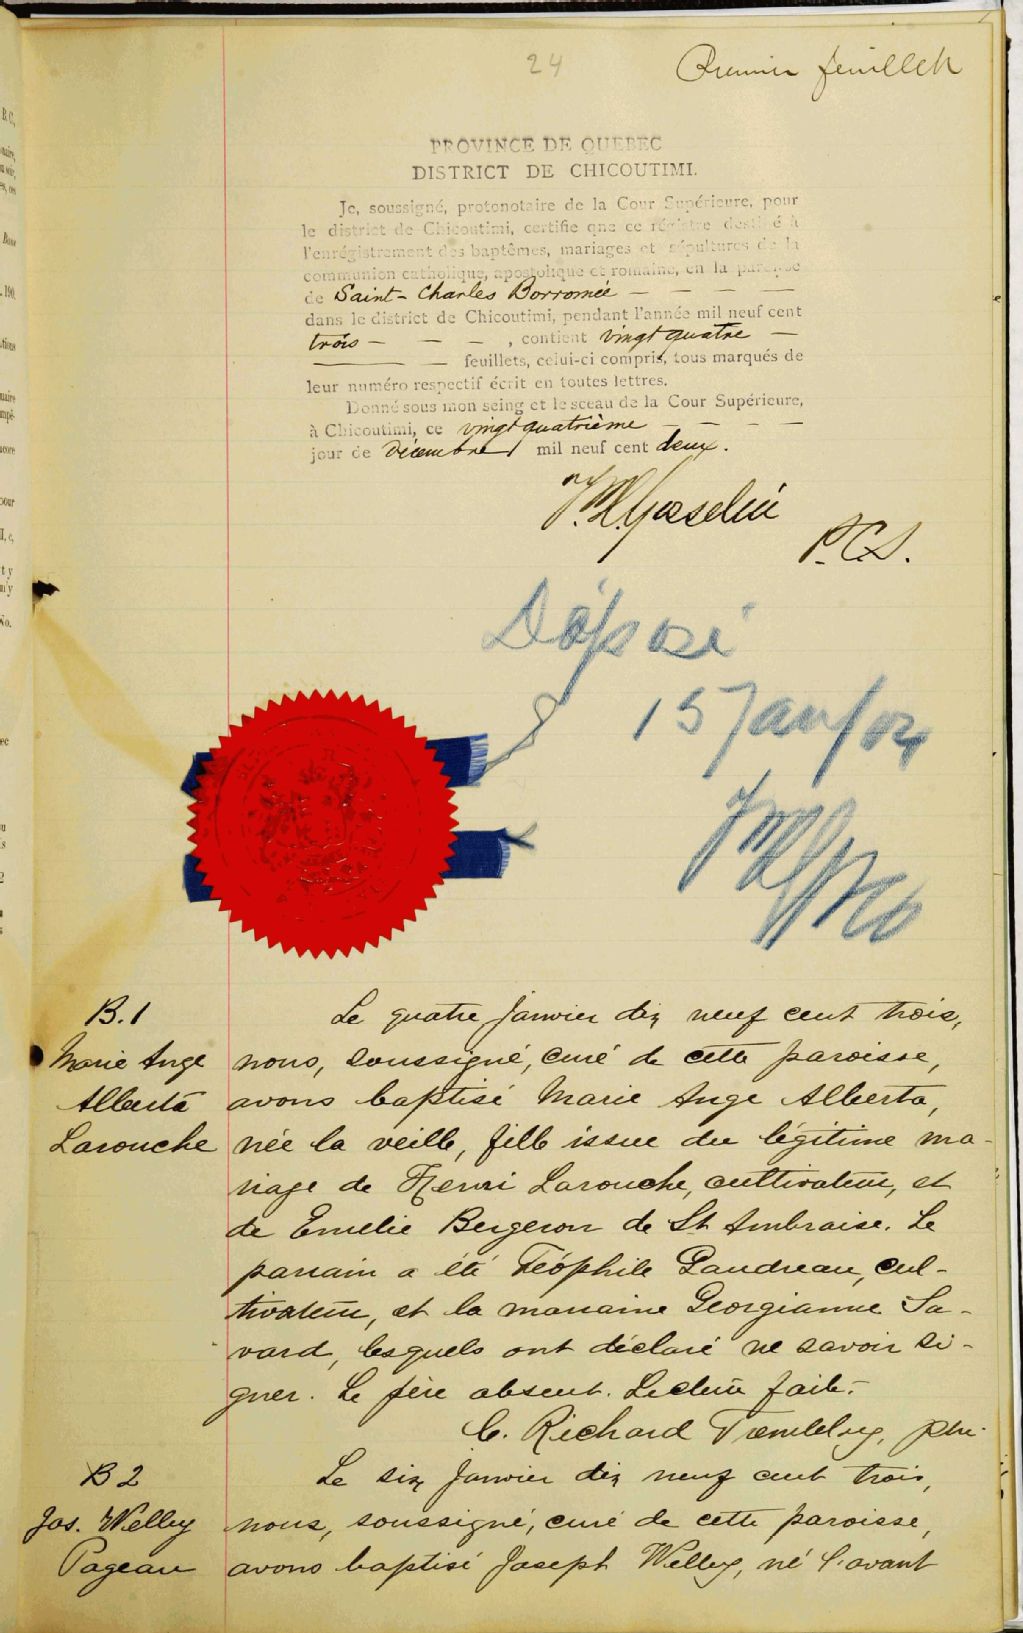 24
Premier feuillet
PROVINCE DE QUEBEC
DISTRICT DE CHICOUTIMI.
Je, soussigné, protonotaire de la Cour Supérieure, pour
le district de Chicoutimi, certifie que ce régistre destiné à
l'enrégistrement des baptêmes, mariages et sépultures de la
communion catholique, apostolique et romaine, en la paroisse
de Saint-Charles Borromée — — — —
dans le district de Chicoutimi, pendant l'année mil neuf cent
trois — — — —, contient vingt quatre —
— — feuillets, celui-ci compris, tous marqués de
leur numéro respectif écrit en toutes lettres.
Donné sous mon seing et le sceau de la Cour Supérieure,
à Chicoutimi, ce vingt quatrième — — — —
jour de Décembre mil neuf cent deux.
Gosselin
P.C.S.
Déposé
15 Janv/04
B.1
Marie Ange
Alberta
Larouche
Le quatre janvier dix neuf cent trois,
nous, soussigné, curé de cette paroisse,
avons baptisé Marie Ange Alberta,
née la veille, fille issue du légitime ma-
riage de Henri Larouche, cultivateur, et
de Emelie Bergeron de St Ambroise. Le
parrain a été Téophile Gaudreau, cul-
tivateur, et la marraine Georgianne Sa-
vard, lesquels ont déclaré ne savoir si-
gner. Le père absent. Lecture faite.
C. Richard Tremblay, ptre.
B 2
Jos. Welley
Pageau
Le six janvier dix neuf cent trois,
nous, soussigné, curé de cette paroisse,
avons baptisé Joseph Welley, né l'avant